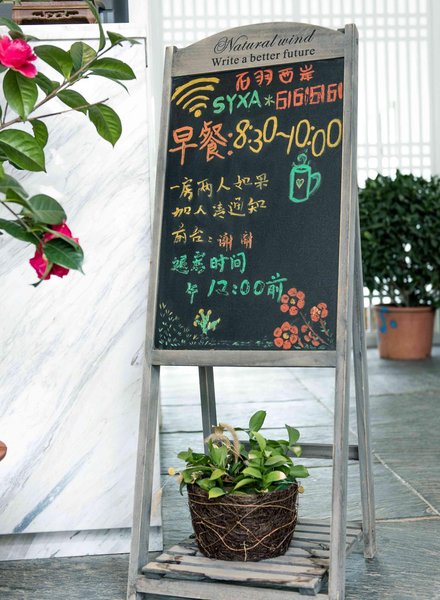 Natural wind
Write a better future
石羽西岸
SYXA*61616161
早餐:8:30~10:00
一房两人如果
加人请通知
前台:谢谢
退房时间
午12:00前